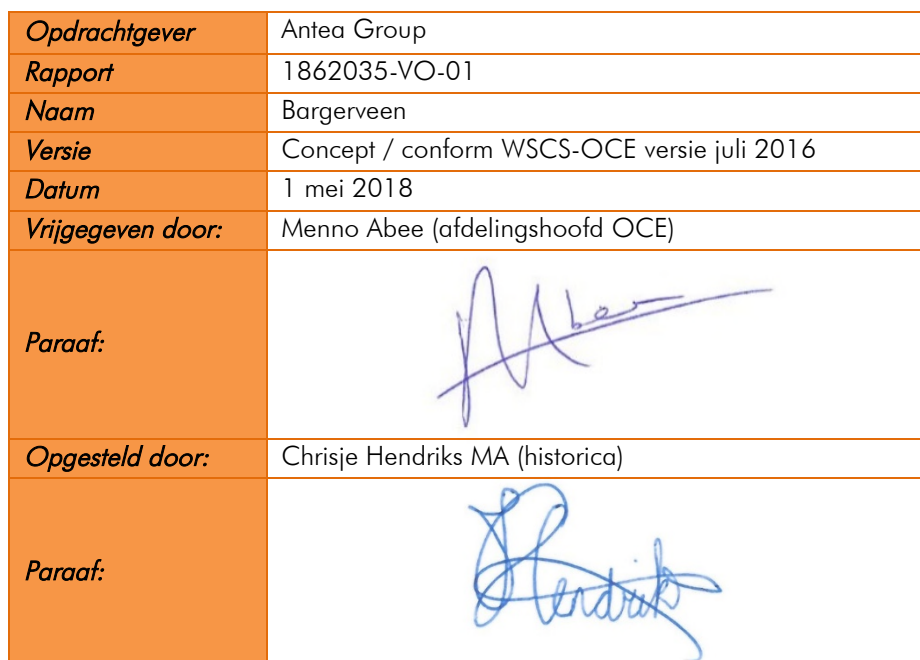 Opdrachtgever Antea Group
Rapport 1862035-VO-01
Naam Bargerveen
Versie Concept / conform WSCS-OCE versie juli 2016
Datum 1 mei 2018
Vrijgegeven door: Menno Abee (afdelingshoofd OCE)
Paraaf: MAbee
Opgesteld door: Chrisje Hendriks MA (historica)
Paraaf: CHendriks